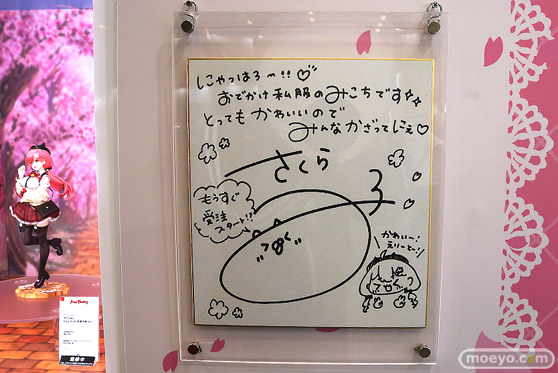 にゃっはろ〜!!♡
おでかけ私服のみこちです☆☆
とってもかわいいので
みんなかざってにぇ♡
さくら
もうすぐ
受注
スタート!?
かわいー!
えりーとー!
moeyo.com